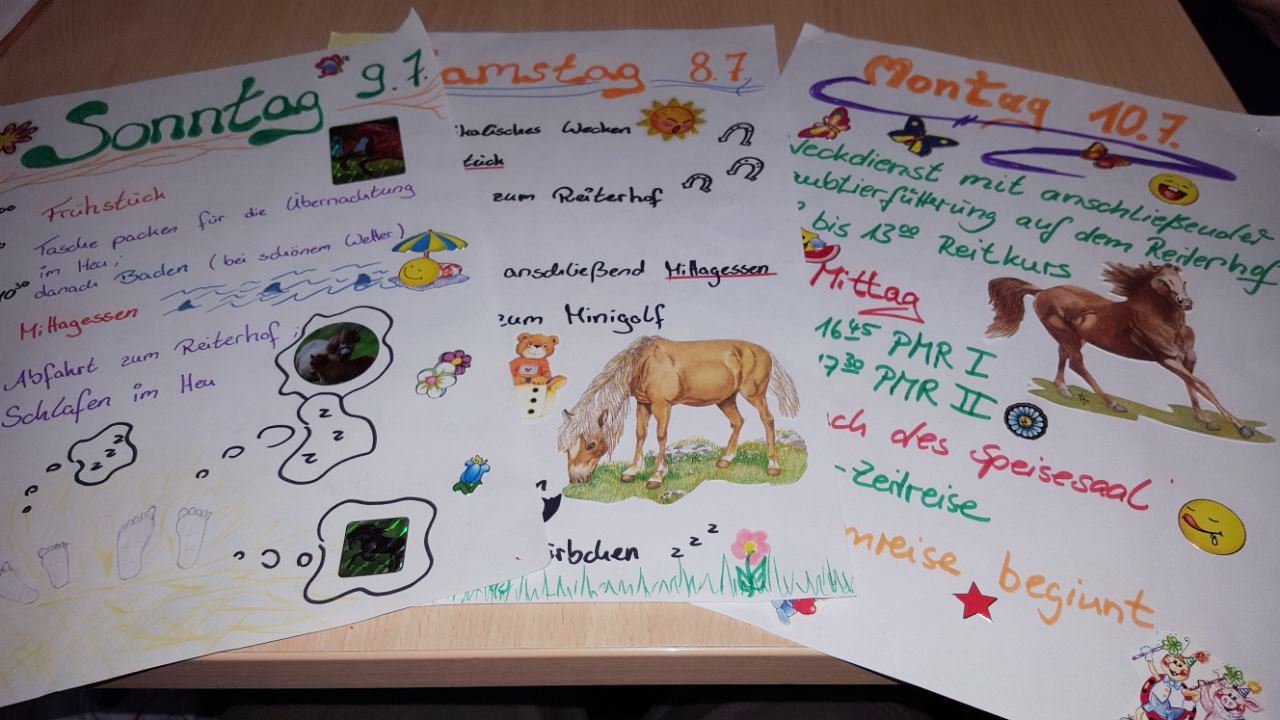 Sonntag 9.7.
Frühstück
Tasche packen für die Übernachtung
im Heu;
10³⁰ danach Baden (bei schönem Wetter)
Mittagessen
Abfahrt zum Reiterhof;
Schlafen im Heu
z z z
z z z
amstag 8.7.
ikalisches Wecken
tück
zum Reiterhof
anschließend Mittagessen
zum Minigolf
irbchen z z z
Montag 10.7.
Weckdienst mit anschließender
aubtierfütterung auf dem Reiterhof
bis 13⁰⁰ Reitkurs
Mittag
16⁴⁵ PMR I
17³⁰ PMR II
ch des Speisesaal
-Zeitreise
mreise beginnt